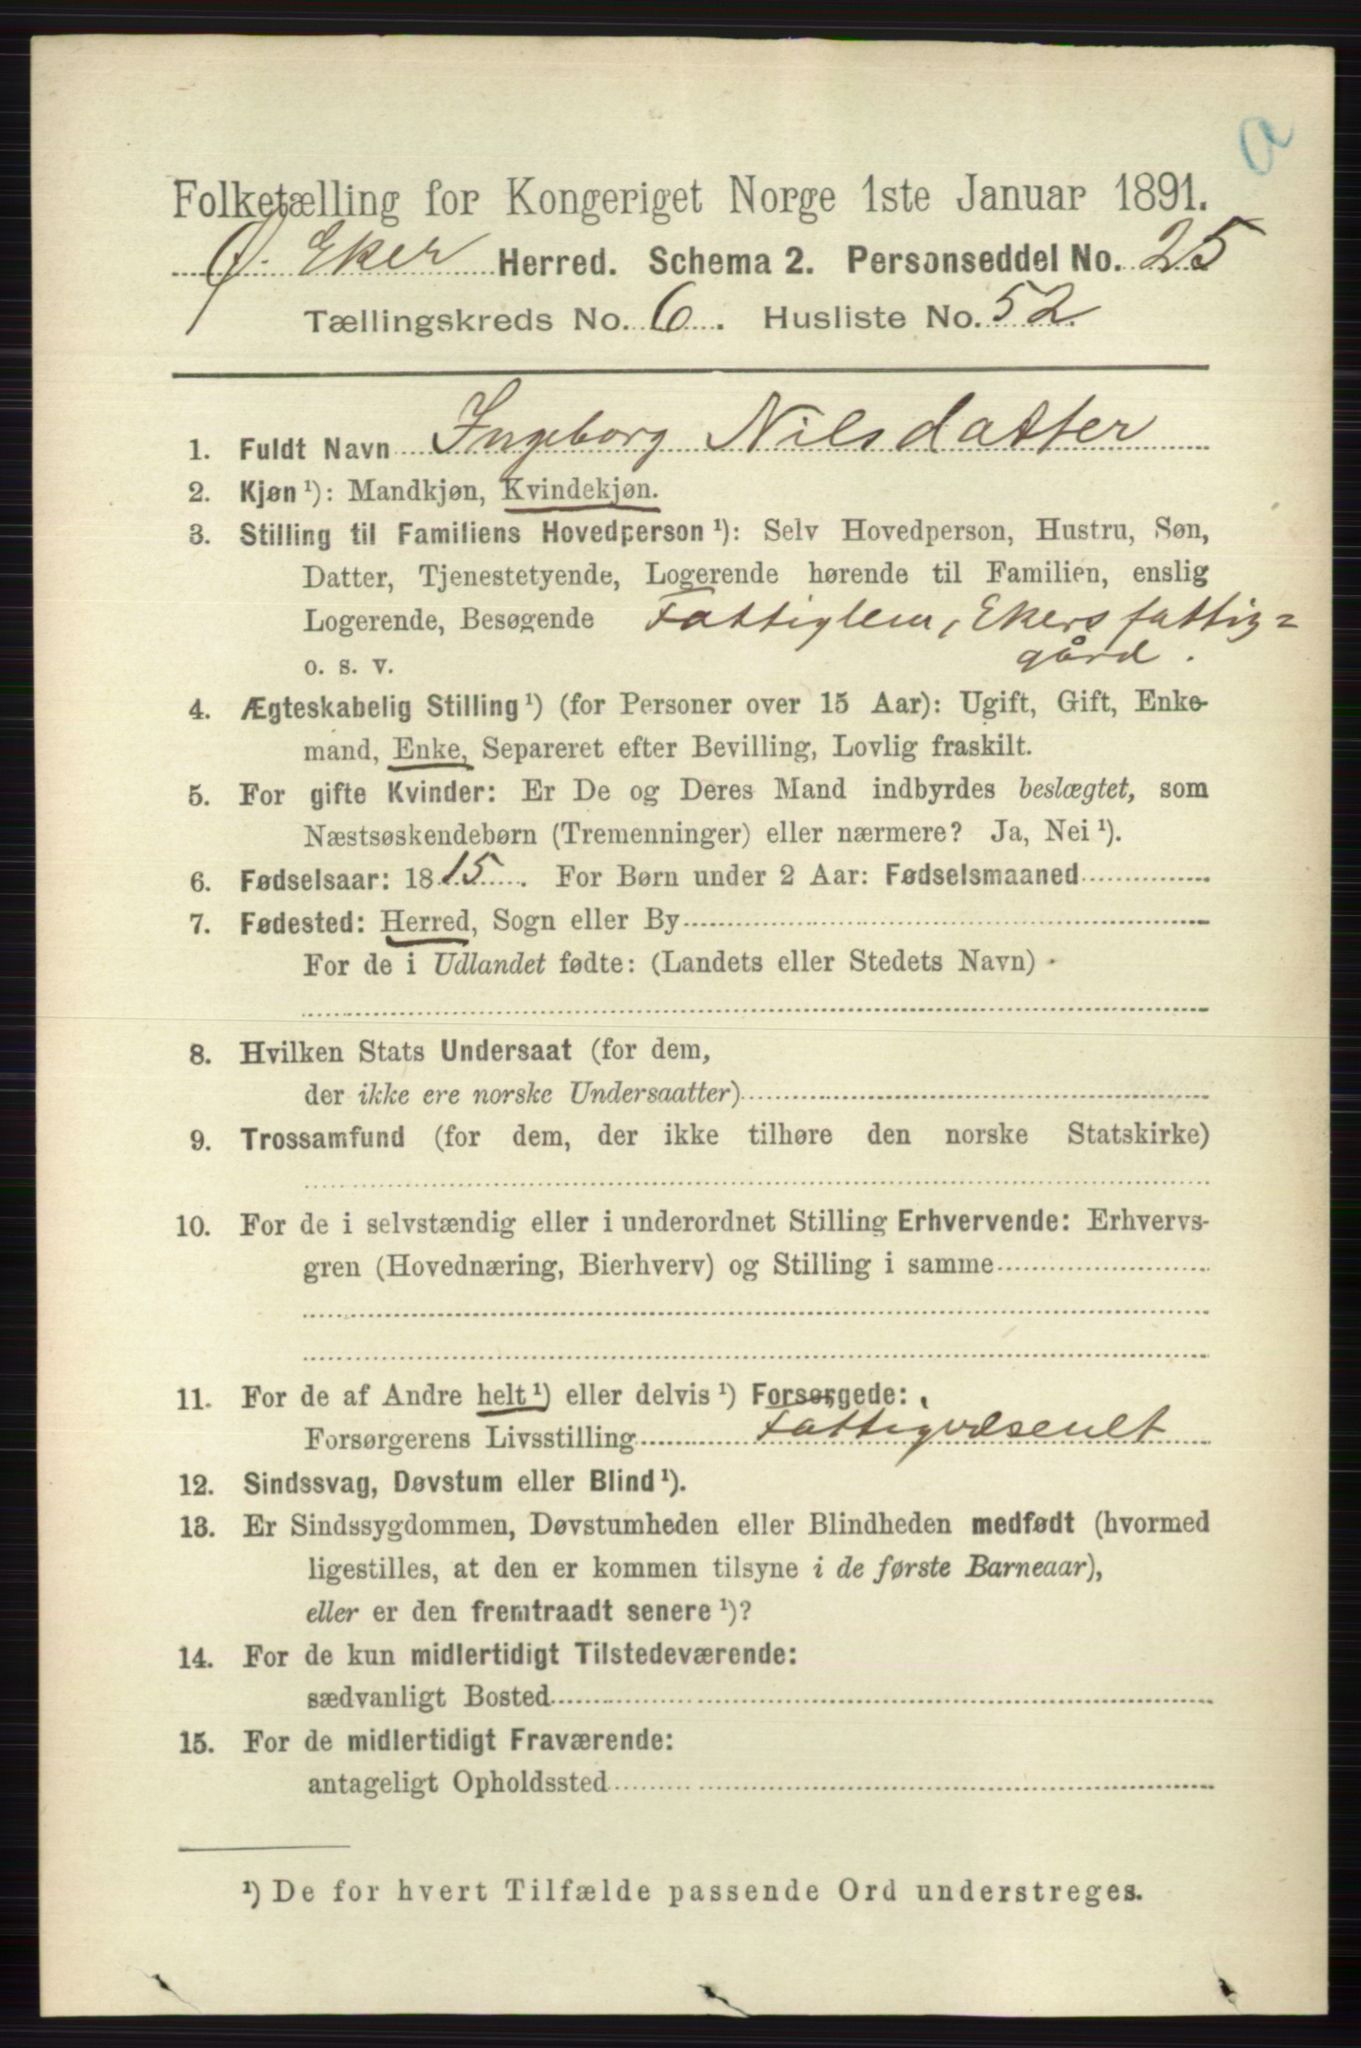 a
Folketælling for Kongeriget Norge 1ste Januar 1891.
Ø. Eker Herred. Schema 2. Personseddel No. 25
Tællingskreds No. 6. Husliste No. 52.
1. Fuldt Navn Ingeborg Nilsdatter
2. Kjøn ¹): Mandkjøn, Kvindekjøn.
3. Stilling til Familiens Hovedperson ¹): Selv Hovedperson, Hustru, Søn,
Datter, Tjenestetyende, Logerende hørende til Familien, enslig
Logerende, Besøgende Fattiglem, Ekers fattig=
o. s. v. gård.
4. Ægteskabelig Stilling ¹) (for Personer over 15 Aar): Ugift, Gift, Enke-
mand, Enke, Separeret efter Bevilling, Lovlig fraskilt.
5. For gifte Kvinder: Er De og Deres Mand indbyrdes beslægtet, som
Næstsøskendebørn (Tremenninger) eller nærmere? Ja, Nei ¹).
6. Fødselsaar: 1815. For Børn under 2 Aar: Fødselsmaaned
7. Fødested: Herred, Sogn eller By
For de i Udlandet fødte: (Landets eller Stedets Navn)
8. Hvilken Stats Undersaat (for dem,
der ikke ere norske Undersaatter)
9. Trossamfund (for dem, der ikke tilhøre den norske Statskirke)
10. For de i selvstændig eller i underordnet Stilling Erhvervende: Erhvervs-
gren (Hovednæring, Bierhverv) og Stilling i samme
11. For de af Andre helt ¹) eller delvis ¹) Forsørgede:
Forsørgerens Livsstilling Fattigvæsenet
12. Sindssvag, Døvstum eller Blind ¹).
13. Er Sindssygdommen, Døvstumheden eller Blindheden medfødt (hvormed
ligestilles, at den er kommen tilsyne i de første Barneaar),
eller er den fremtraadt senere ¹)?
14. For de kun midlertidigt Tilstedeværende:
sædvanligt Bosted
15. For de midlertidigt Fraværende:
antageligt Opholdssted
¹) De for hvert Tilfælde passende Ord understreges.